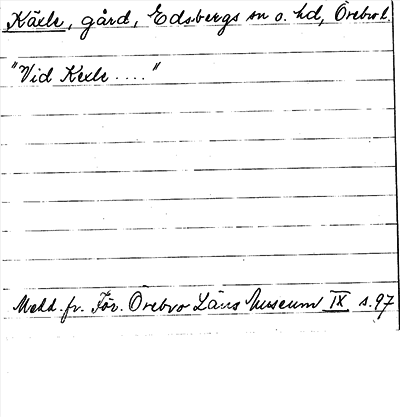 Käxle, gård, Edsbergs sn o. hd, Örebro l.
"Vid Kexle ...."
Medd. fr. För. Örebro Läns Museum IX s. 97